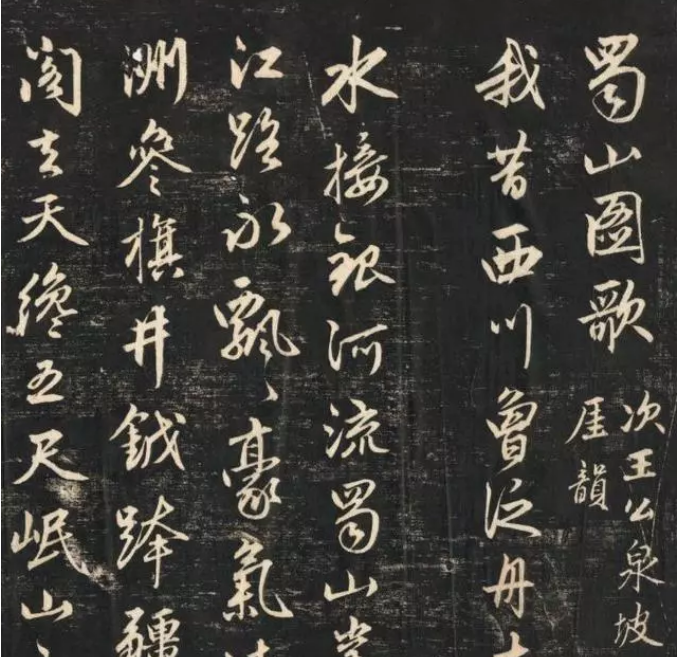 蜀山圖歌
次王公泉坡
厓韻
我昔西川曾泛舟
水接銀河流蜀山
江路永飄〻豪氣
參旗井鉞
閣去天纔五尺岷山